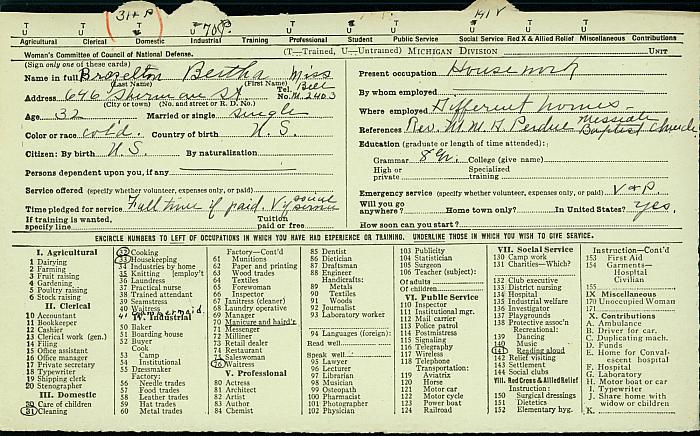 31 + P
T U Agricultural T U Clerical T U Domestic T U Industrial 70 P. T U Training T U Professional T U Student T U Public Service T U Social Service T U Red X & Allied Relief T U Miscellaneous T U Contributions
Woman's Committee of Council of National Defense. (T—Trained, U—Untrained) MICHIGAN DIVISION UNIT
(Sign only one of these cards)
Name in full Brazelton Bertha Miss
(Last Name) (First Name) Tel. Bell
Address 646 Sherman St No. M. 2463
(City or town) (No. and street or R. D. No.)
Age 32 Married or single single
Color or race col'd. Country of birth U. S.
Citizen: By birth U. S. By naturalization
Persons dependent upon you, if any
Service offered (specify whether volunteer, expenses only, or paid)
Time pledged for service Full time if paid. V if social service
If training is wanted, specify line Tuition paid or free
Present occupation House work
By whom employed
Where employed Different homes
References Rev. Perdue Messiah Baptist Church
Education (graduate or length of time attended):
Grammar 8 Gr. College (give name)
High or private Specialized training
Emergency service (specify whether volunteer, expenses only, or paid) V & P.
Will you go anywhere? Home town only? In United States? Yes.
How soon can you start?
ENCIRCLE NUMBERS TO LEFT OF OCCUPATIONS IN WHICH YOU HAVE HAD EXPERIENCE OR TRAINING. UNDERLINE THOSE IN WHICH YOU WISH TO GIVE SERVICE.
I. Agricultural
1 Dairying
2 Farming
3 Fruit raising
4 Gardening
5 Poultry raising
6 Stock raising
II. Clerical
10 Accountant
11 Bookkeeper
12 Cashier
13 Clerical work (gen.)
14 Filing
15 Office assistant
16 Office manager
17 Private secretary
18 Typewriter
19 Shipping clerk
20 Stenographer
III. Domestic
30 Care of children
31 Cleaning
32 Cooking
33 Housekeeping
34 Industries by home
35 Knitting [employ't
36 Laundress
37 Practical nurse
38 Trained attendant
39 Seamstress
40 Waitress
41 Chambermaid.
IV. Industrial
50 Baker
51 Boarding house
52 Buyer
Cook
53 Camp
54 Institutional
55 Dressmaker
Factory:
56 Needle trades
57 Food trades
58 Leather trades
59 Hat trades
60 Metal trades
Factory—Cont'd
61 Munitions
62 Paper and printing
63 Wood trades
64 Textiles
65 Forewoman
66 Inspector
67 Janitress (cleaner)
68 Laundry operative
69 Manager
70 Manicure and haird'r.
71 Messenger
72 Milliner
73 Retail dealer
74 Restaurant
75 Saleswoman
76 Waitress
V. Professional
80 Actress
81 Architect
82 Artist
83 Author
84 Chemist
85 Dentist
86 Dietitian
87 Draftsman
88 Engineer
Handicrafts:
89 Metals
90 Textiles
91 Woods
92 Journalist
93 Laboratory worker
94 Languages (foreign):
Read well
Speak well
95 Lawyer
96 Lecturer
97 Librarian
98 Musician
99 Osteopath
100 Pharmacist
101 Photographer
102 Physician
103 Publicity
104 Statistician
105 Surgeon
106 Teacher (subject):
Of adults
Of children
VI. Public Service
110 Inspector
111 Institutional mgr.
112 Mail carrier
113 Police patrol
114 Postmistress
115 Signaling
116 Telegraphy
117 Wireless
118 Telephone
Transportation:
119 Aviatrix
120 Horse
121 Motor car
122 Motor cycle
123 Power boat
124 Railroad
VII. Social Service
130 Camp work
131 Charities—Which?
132 Club executive
133 District nursing
134 Hospital
135 Industrial welfare
136 Investigator
137 Playgrounds
138 Protective assoc'n
Recreational:
139 Dancing
140 Music
141 Reading aloud
142 Relief visiting
143 Settlement
144 Social clubs
VIII. Red Cross & Allied Relief
Instruction:
150 Surgical dressings
151 Dietetics
152 Elementary hyg.
Instruction—Cont'd
153 First Aid
154 Garments—
Hospital
Civilian
155
IX Miscellaneous
170 Unoccupied Woman
171
X. Contributions
A. Ambulance
B. Driver for car.
C. Duplicating mach.
D. Funds
E. Home for Convalescent hospital
F. Hospital
G. Laboratory
H. Motor boat or car
I. Typewriter
J. Share home with widow or children
K.